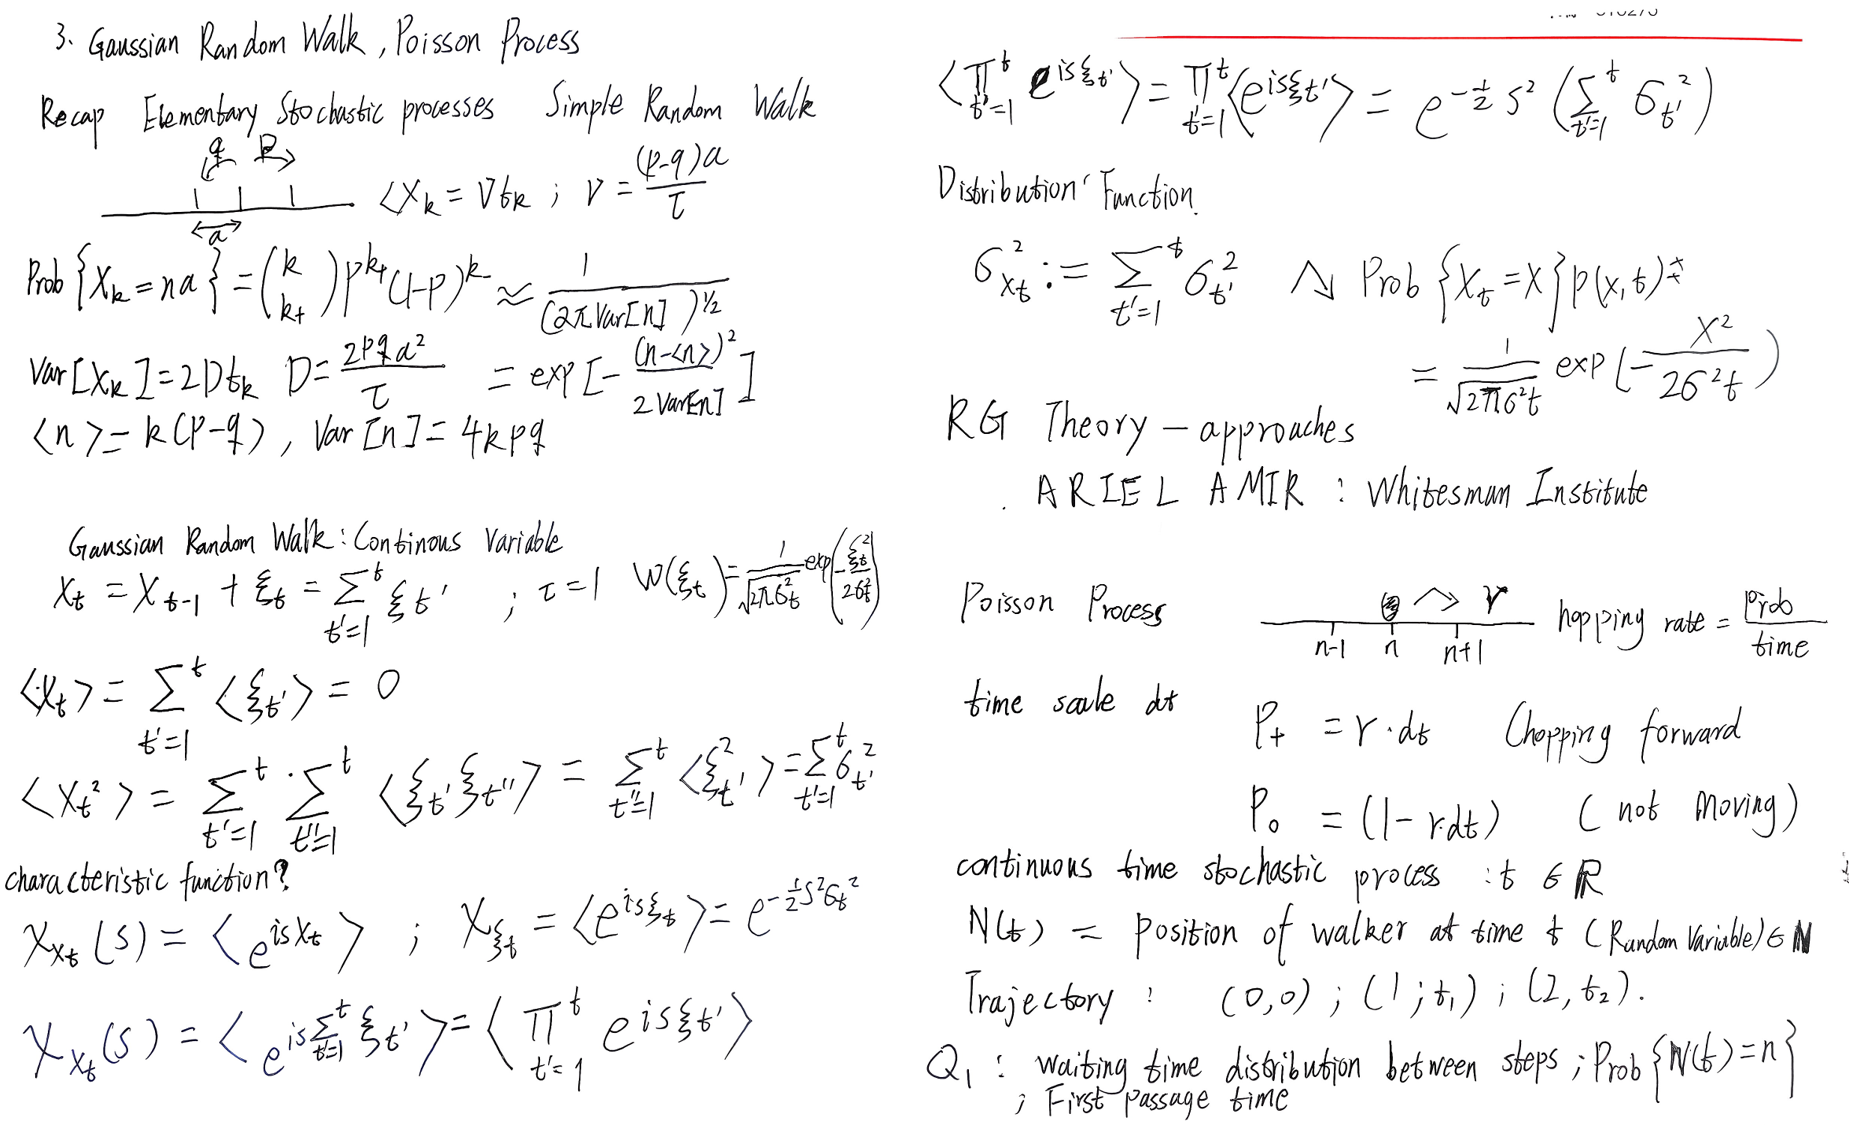 3. Gaussian Random Walk, Poisson Process
Recap Elementary Stochastic processes Simple Random Walk
q p
a
<X_k = v t_k ; v = (p-q)a / τ
Prob {X_k = na} = (k k_+) p^{k_+} (1-p)^{k_-} ≈ 1 / (2π Var[n])^{1/2}
Var[X_k] = 2Dt_k D = 2pqa² / τ = exp[-(n-<n>)² / 2Var[n]]
<n> = k(p-q), Var[n] = 4kpq
Gaussian Random Walk : Continous Variable
X_t = X_{t-1} + ξ_t = Σ_{t'=1}^t ξ_{t'} ; τ=1 W(ξ_t) = 1/√(2πσ_t²) exp(-ξ_t² / 2σ_t²)
<X_t> = Σ_{t'=1}^t <ξ_{t'}> = 0
<X_t²> = Σ_{t'=1}^t · Σ_{t''=1}^t <ξ_{t'} ξ_{t''}> = Σ_{t'=1}^t <ξ_{t'}²> = Σ_{t'=1}^t σ_{t'}²
characteristic function?
χ_{X_t}(s) = <e^{isX_t}> ; χ_{ξ_t} = <e^{isξ_t}> = e^{-½s²σ_t²}
χ_{X_t}(s) = <e^{is Σ_{t'=1}^t ξ_{t'}}> = <Π_{t'=1}^t e^{isξ_{t'}}>
<Π_{t'=1}^t e^{isξ_{t'}}> = Π_{t'=1}^t <e^{isξ_{t'}}> = e^{-½s² (Σ_{t'=1}^t σ_{t'}²)}
Distribution Function.
σ_{X_t}² := Σ_{t'=1}^t σ_{t'}² Prob {X_t = X} p(x,t)
= 1/√(2πσ²t) exp(-X² / 2σ²t)
RG Theory - approaches
. ARIEL AMIR : Whitesman Institute
Poisson Process
r
n-1 n n+1
hopping rate = prob / time
time scale dt P_+ = r·dt (hopping forward
P_0 = (1 - r·dt) (not moving)
continuous time stochastic process : t ∈ R
N(t) = position of walker at time t (Random Variable) ∈ N
Trajectory : (0,0) ; (1; t_1) ; (2, t_2).
Q_1 : waiting time distribution between steps ; Prob {N(t) = n}
; First passage time